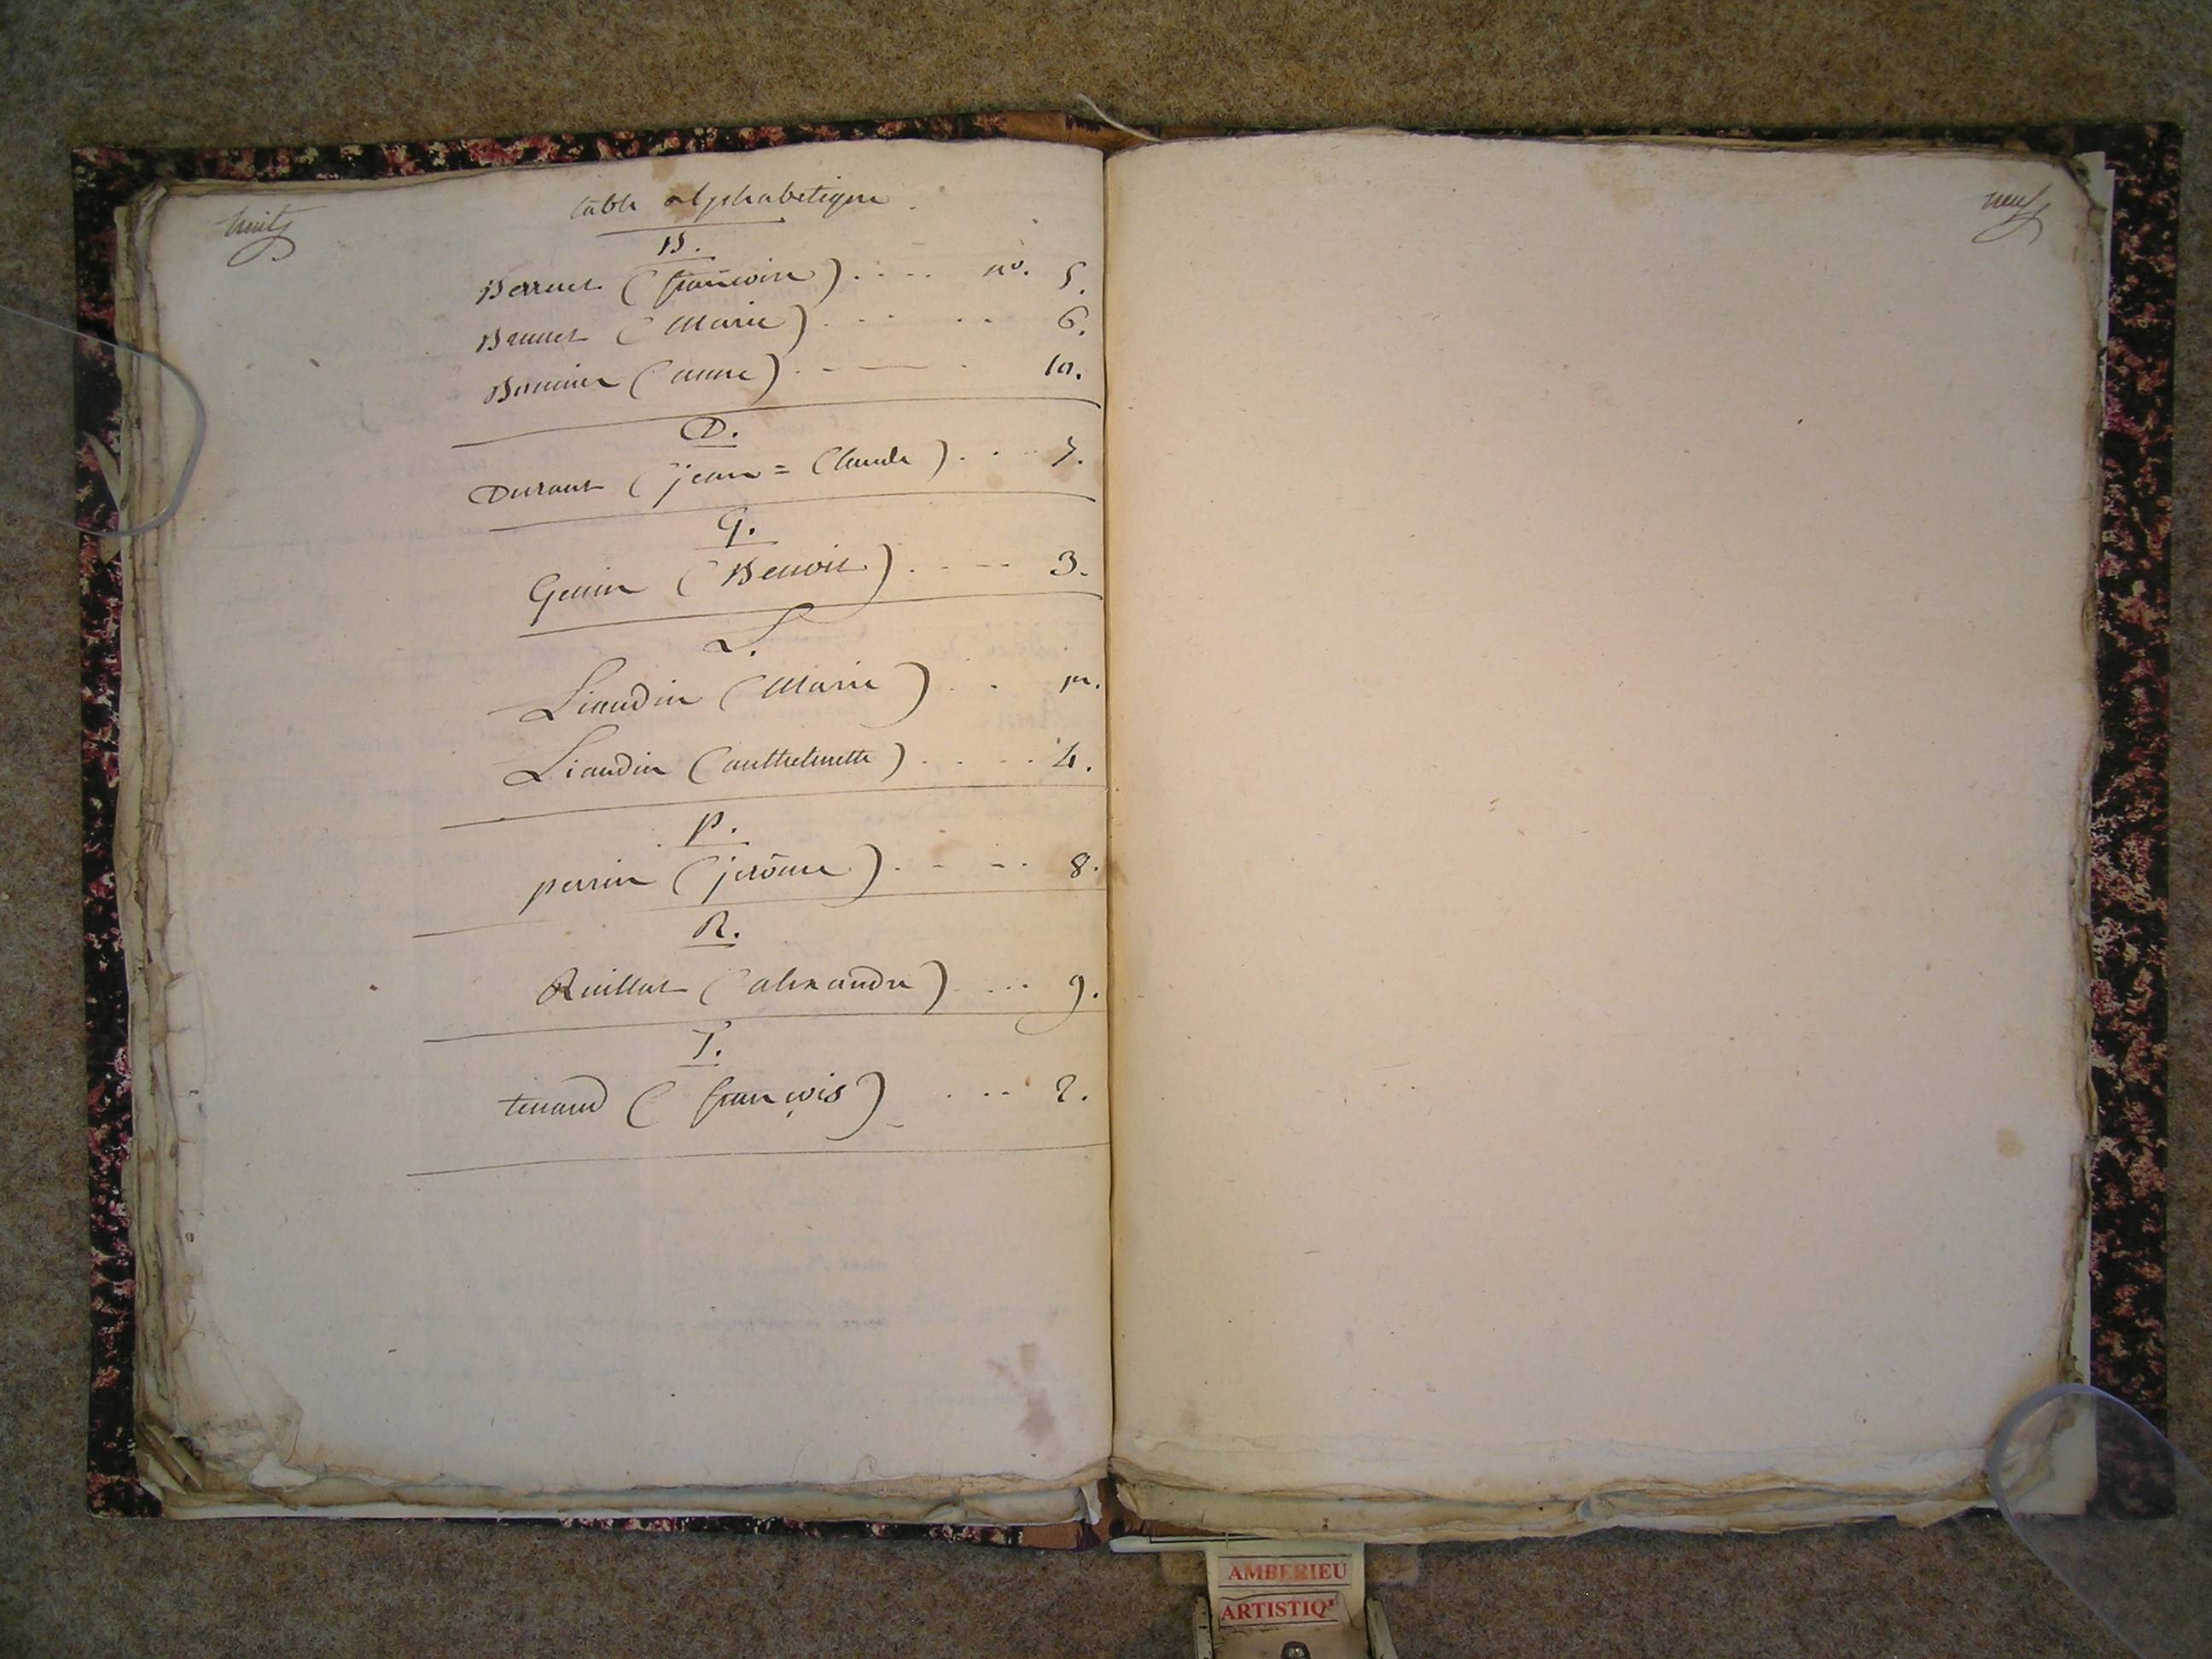 huit
table alphabetique
B.
Berruet (françoise) .... no. 5.
Brunet (Marie) ..... 6.
Bonnier (anne) .... 10.
D.
Durant (jean = Claude) ... 7.
G.
Genin (Benoit) .... 3.
L.
Liaudin (Marie) . . 1er.
Liaudin (anthelmette) ..... 4.
P.
perrin (jerôme) .... 8.
R.
Ruillat (alexandre) .... 9.
T.
tenand (françois) .... 2.
neuf
AMBERIEU
ARTISTIQ